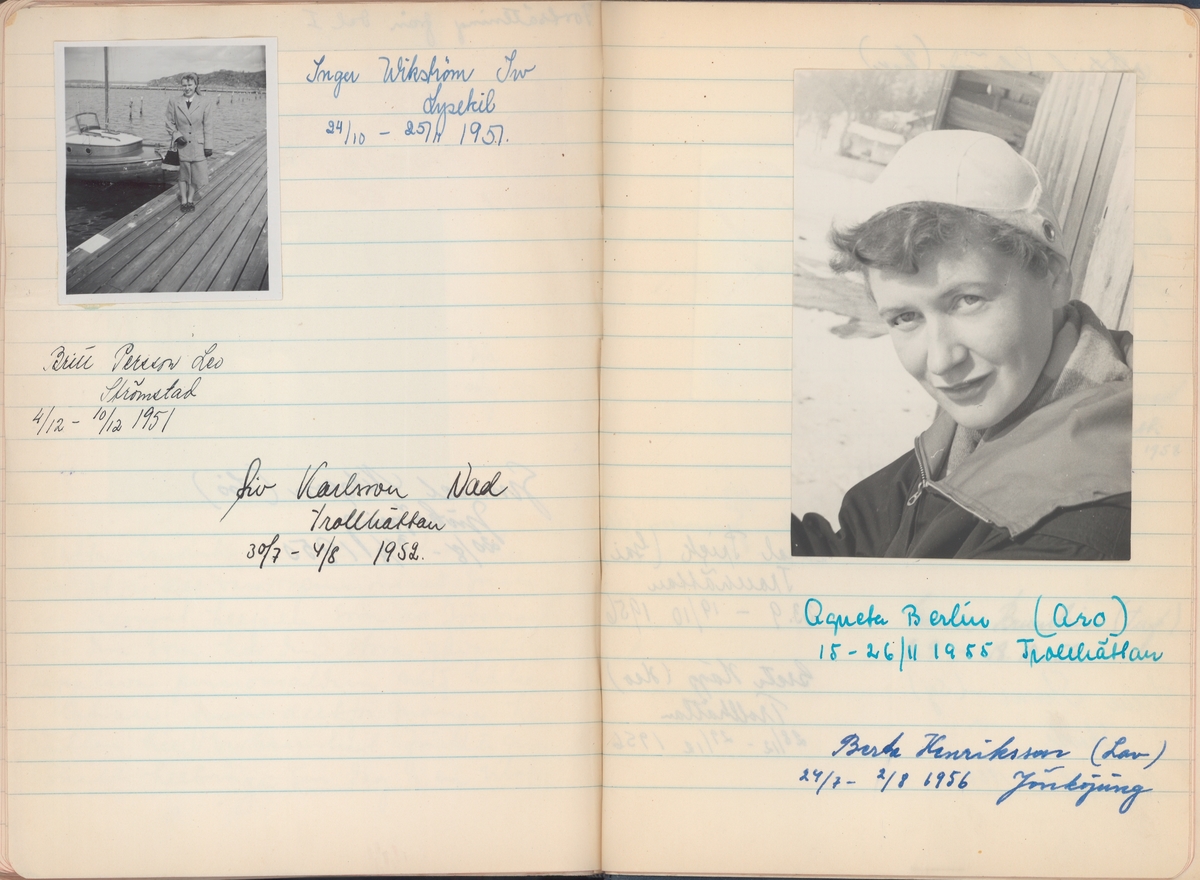 Inger Wikström Iw
Lysekil
24/10 - 25/11 1951.
Britt Persson Leo
Strömstad
4/12 - 10/12 1951
Siv Karlsson Nad
Trollhättan
30/7 - 4/8 1952.
Agneta Berlin (Aro)
15 - 26/11 1955 Trollhättan
Berta Henriksson (Lav)
24/7 - 2/8 1956 Jönköping